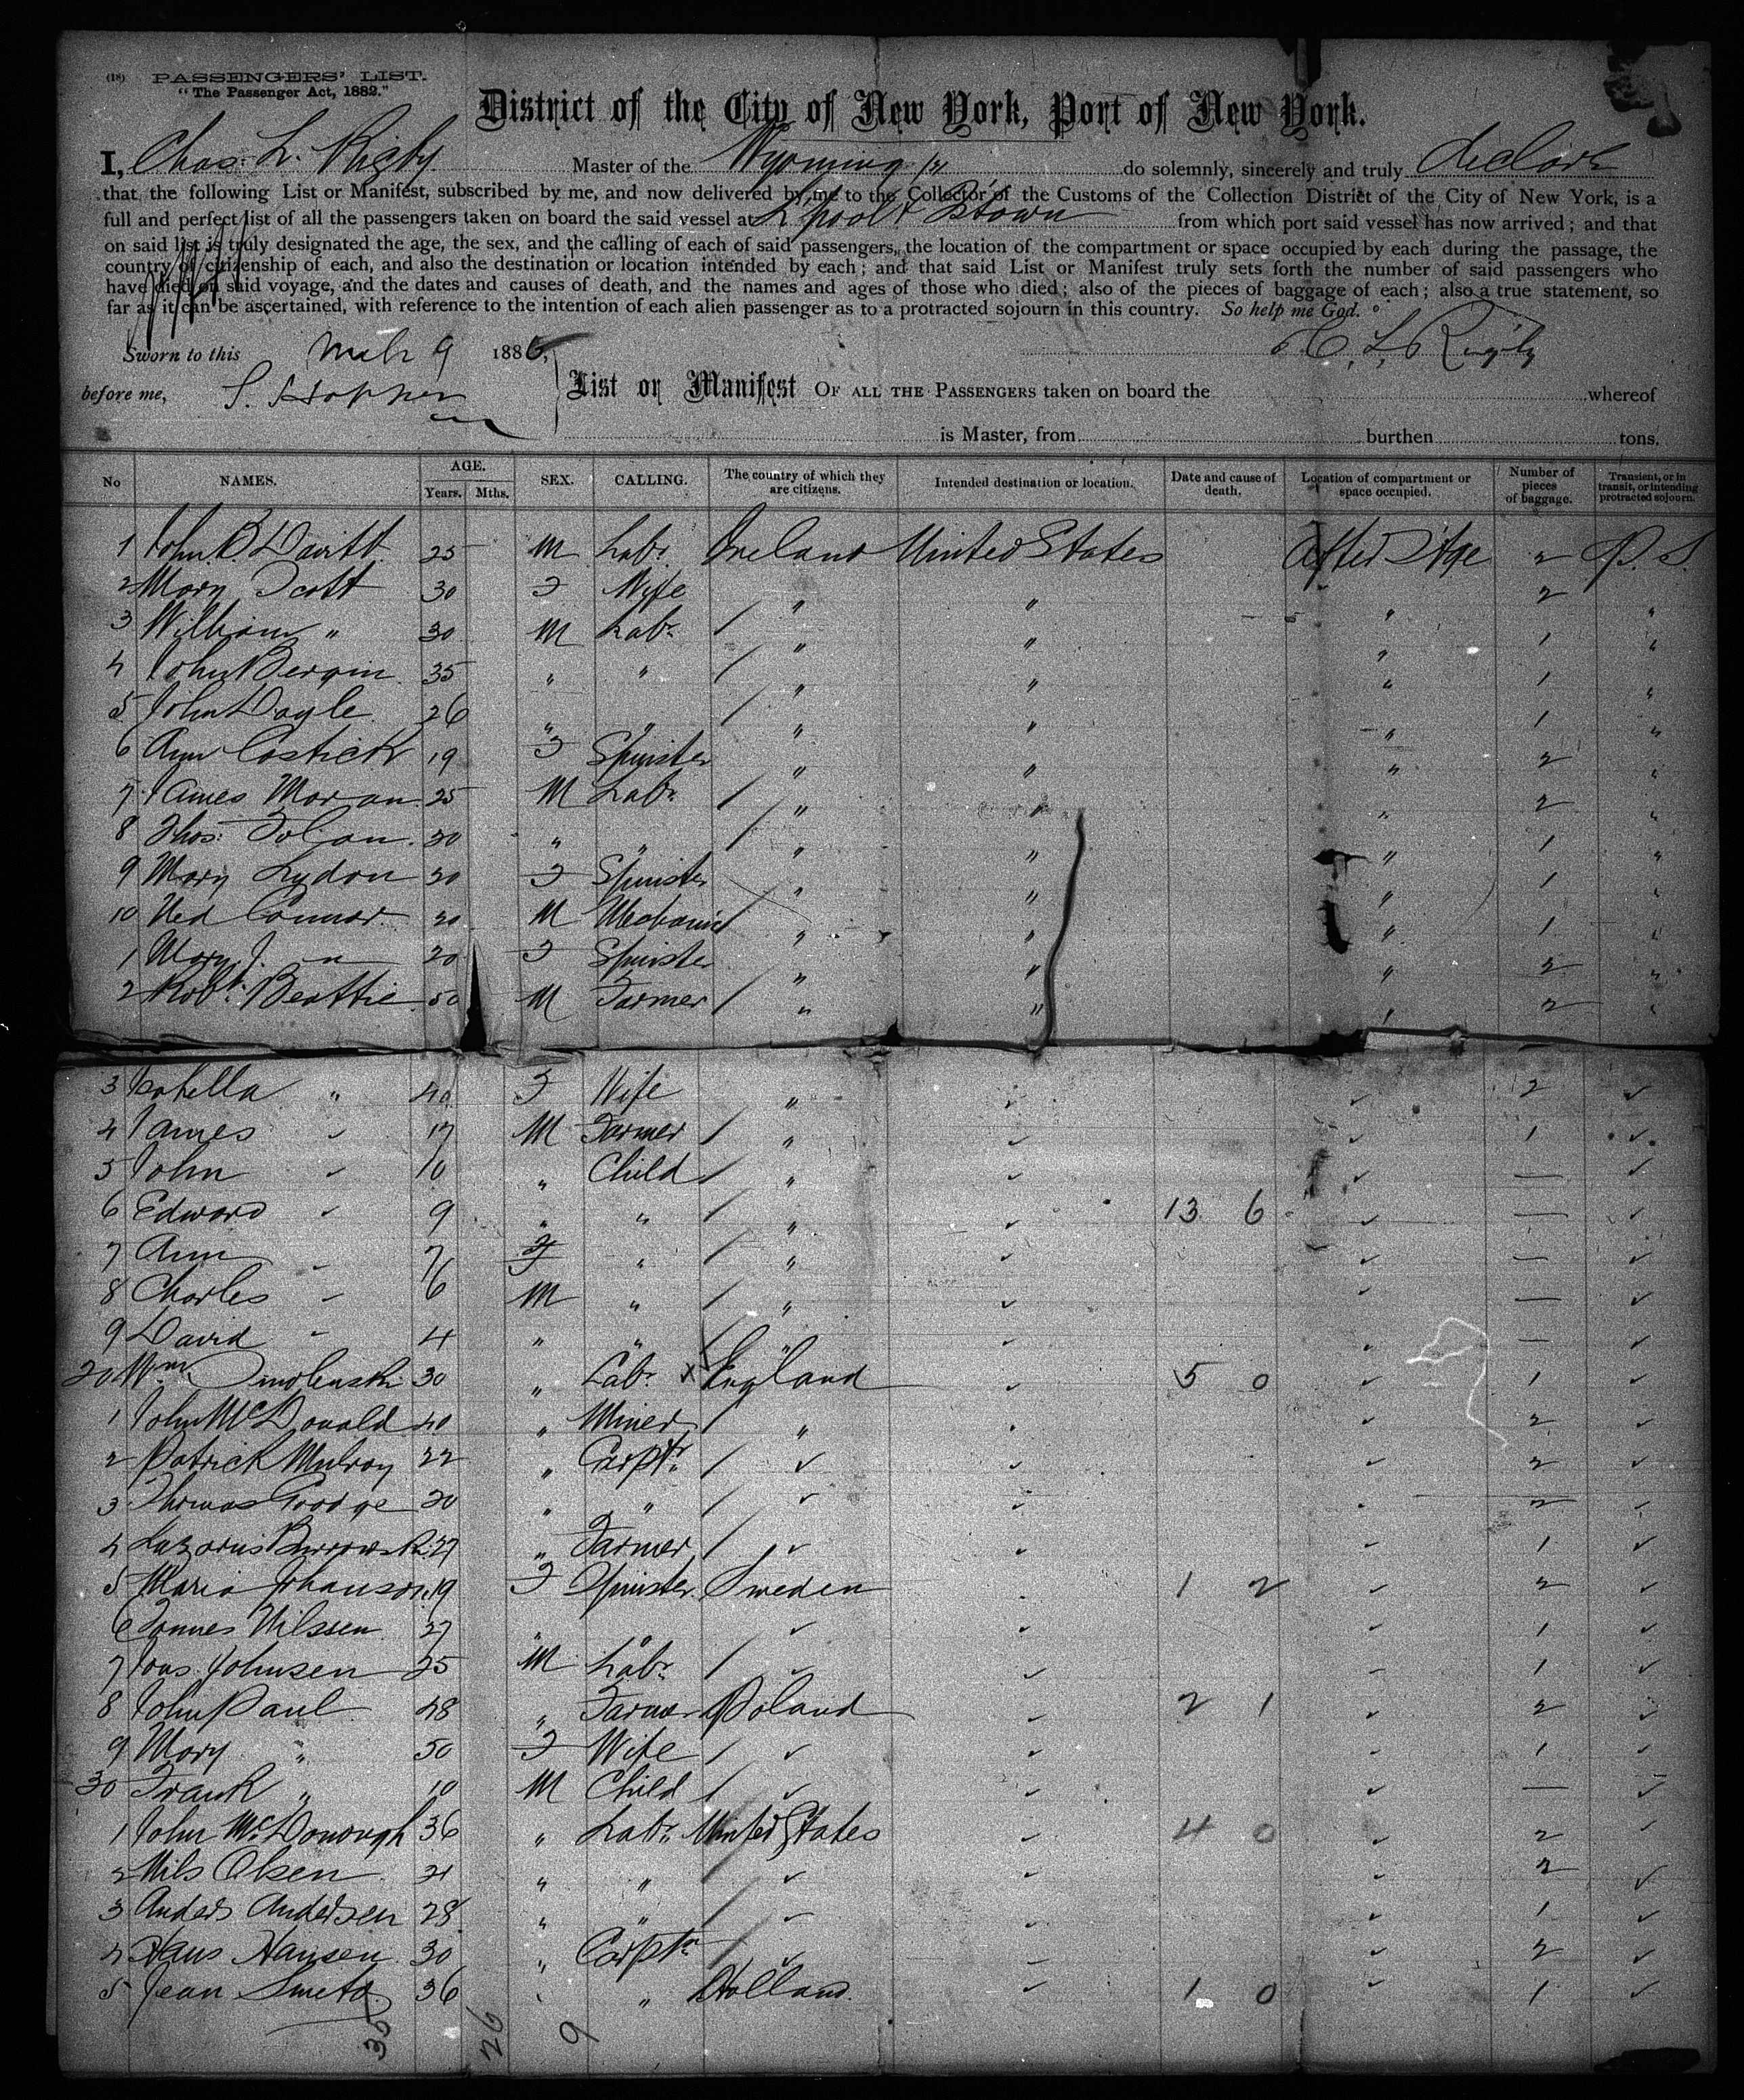 (18) PASSENGERS' LIST.
"The Passenger Act, 1882."
District of the City of New York, Port of New York.
I, Chas. L. Rigby Master of the Wyoming do solemnly, sincerely and truly declare
that the following List or Manifest, subscribed by me, and now delivered by me to the Collector of the Customs of the Collection District of the City of New York, is a
full and perfect list of all the passengers taken on board the said vessel at L'pool & Qtown from which port said vessel has now arrived; and that
on said list is truly designated the age, the sex, and the calling of each of said passengers, the location of the compartment or space occupied by each during the passage, the
country of citizenship of each, and also the destination or location intended by each; and that said List or Manifest truly sets forth the number of said passengers who
have died on said voyage, and the dates and causes of death, and the names and ages of those who died; also of the pieces of baggage of each; also a true statement, so
far as it can be ascertained, with reference to the intention of each alien passenger as to a protracted sojourn in this country. So help me God.
Sworn to this Mch 9 1886, C. L. Rigby
before me, S. Hopper
List or Manifest OF ALL THE PASSENGERS taken on board the whereof
is Master, from burthen tons.
No NAMES. AGE. Years. Mths. SEX. CALLING. The country of which they are citizens. Intended destination or location. Date and cause of death. Location of compartment or space occupied. Number of pieces of baggage. Transient, or in transit, or intending protracted sojourn.
1 John B Davitt 25 M Labr. Ireland United States After Stge 2 P. S.
2 Mary Scott 30 F Wife " " " 2 "
3 William " 30 M Labr. " " " 1 "
4 John Bergin 35 " " " " " 1 "
5 John Doyle 26 " " " " " 1 "
6 Ann Costick 19 F Spinster " " " 2 "
7 James Moran 25 M Labr. " " " 2 "
8 Thos: Tolan 30 " " " " " 1 "
9 Mary Lydon 20 F Spinster " " " 1 "
10 Ned Connor 20 M Mechanic " " " 1 "
1 Mary J. " 20 F Spinster " " " 2 "
2 Robt. Beattie 50 M Farmer " " " 2 "
3 Isabella " 40 F Wife " 2
4 James 17 M Farmer " 1
5 John 10 " Child " —
6 Edward 9 " " " 13 6 —
7 Ann 7 F " " —
8 Charles 6 M " " —
9 David 4 " " " —
20 Wm 30 " Labr. x England 5 0 1
1 John McDonald 40 " Miner " 2
2 Patrick Mulroy 22 " Carptr. 2
3 Thomas 20 " " 2
4 Lazarus 27 " Farmer 1
5 Maria Johanson 19 F Spinster Sweden 1 2 2
6 Nilssen 27 " " 1
7 Johnsen 25 M Labr. 1
8 John Paul 48 " Farmer Poland 2 1 2
9 Mary " 50 F Wife 1
30 Frank " 10 M Child —
1 John McDonough 36 " Labr. United States 4 0 2
2 Nils Olsen 21 " " 2
3 Anders Andersen 28 " " 1
4 Hans Hansen 30 " Carptr 2
5 Jean Smets 36 " " Holland 1 0 1
35 26 9